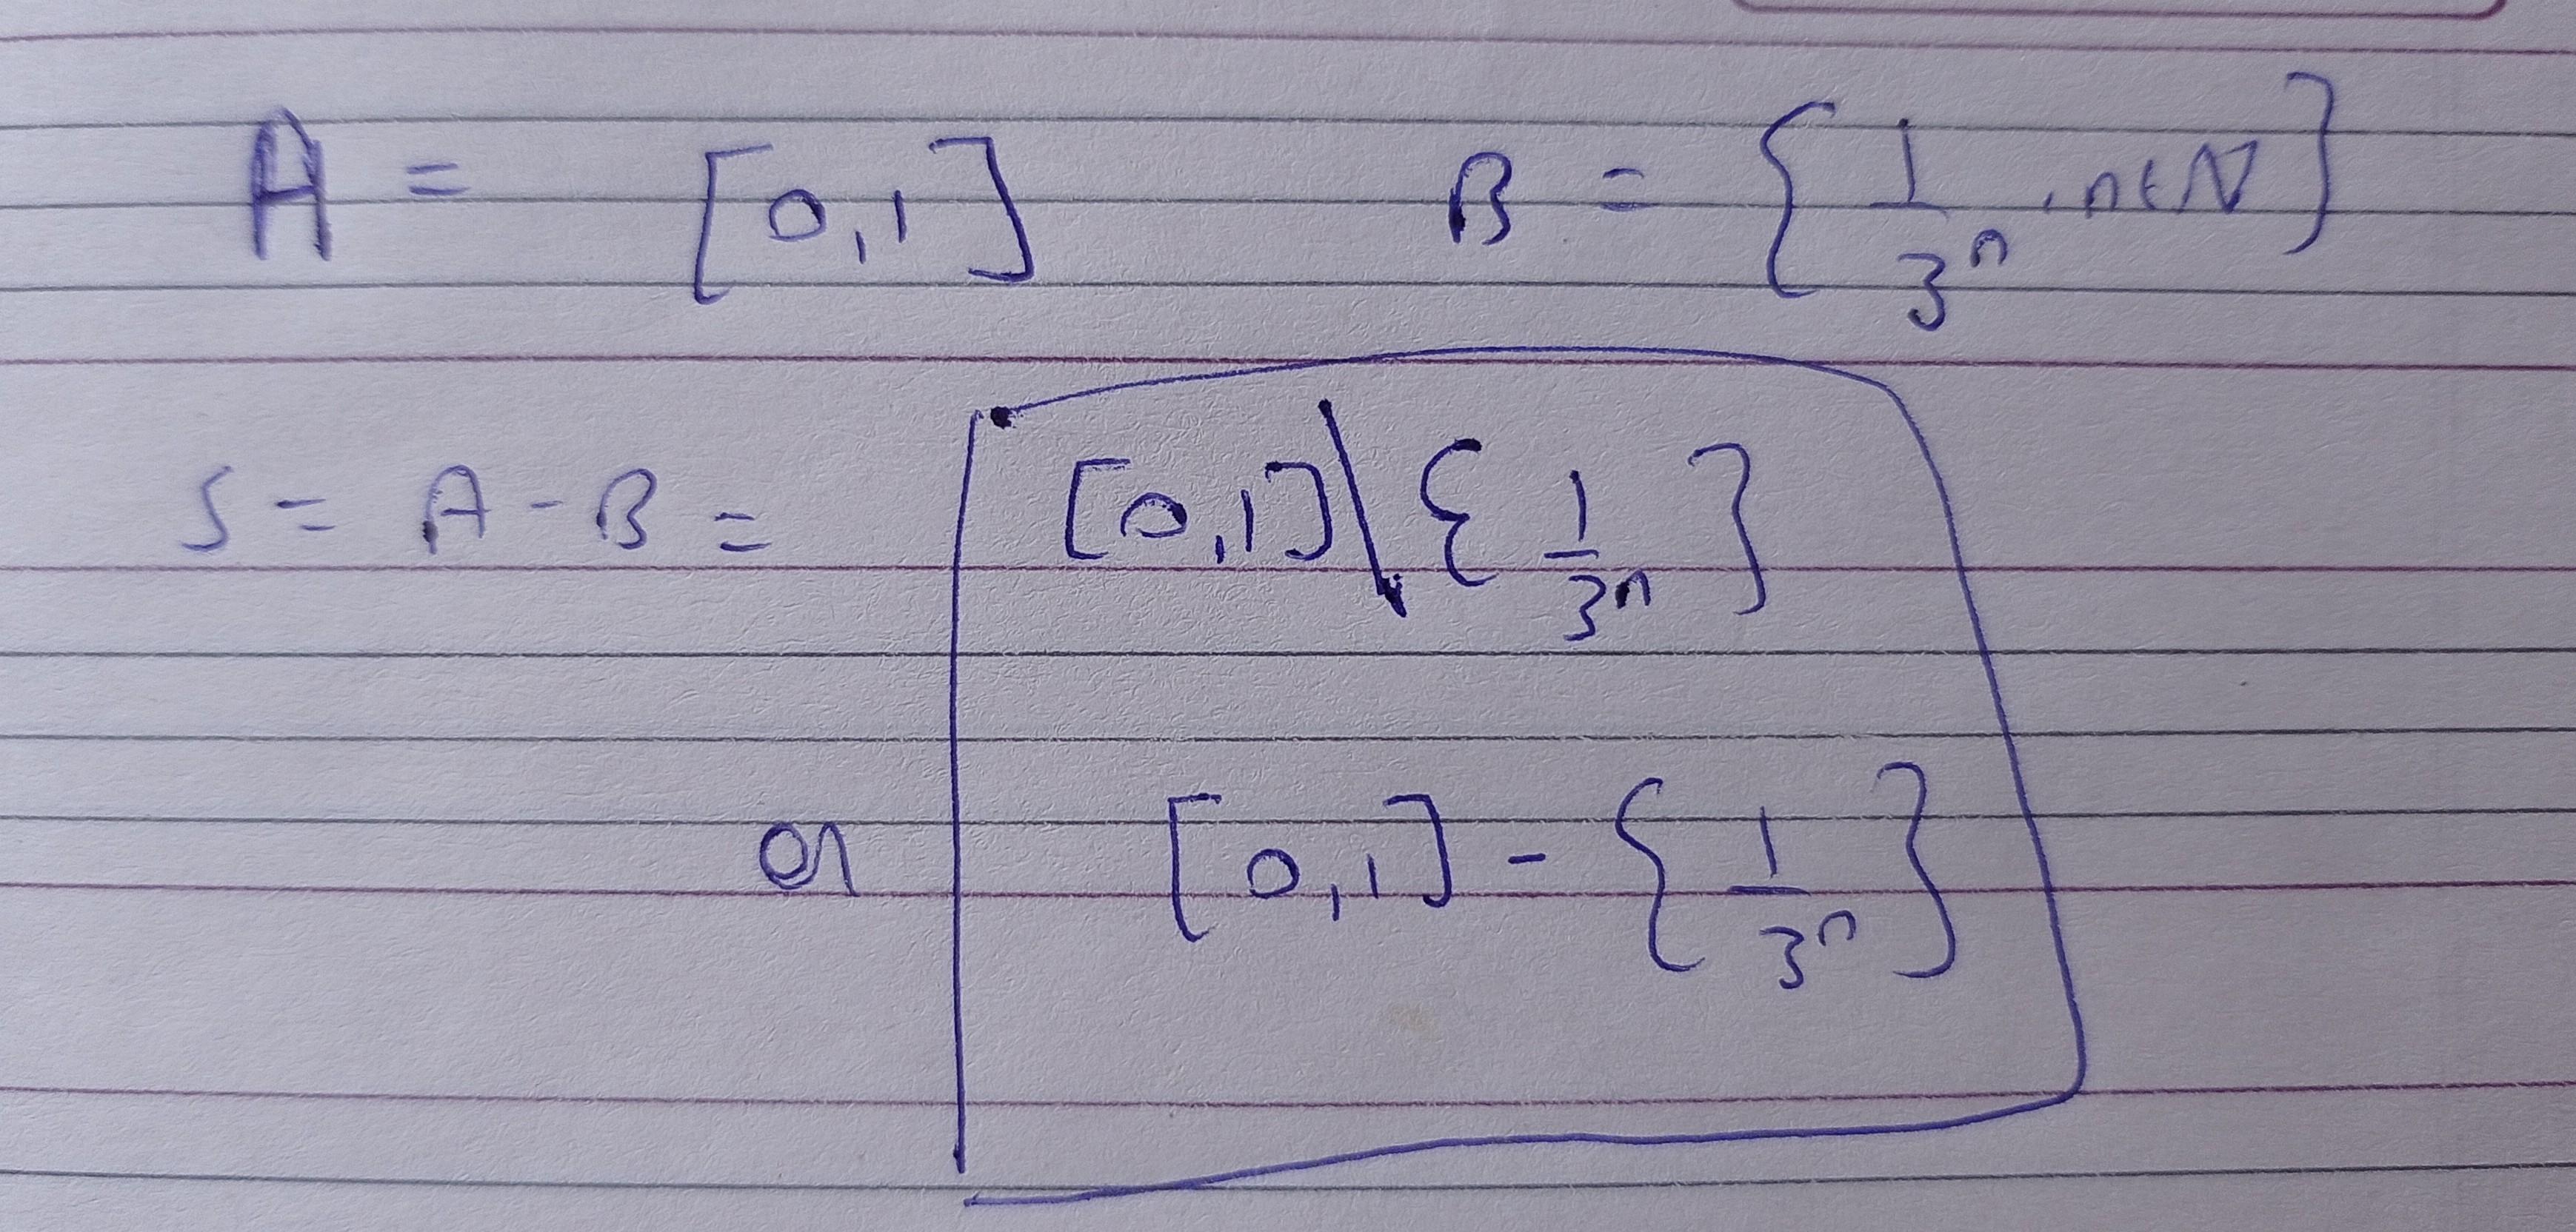 A = [0,1] B = {1/3ⁿ, n∈N}
S = A - B = [0,1] \ {1/3ⁿ}
or [0,1] - {1/3ⁿ}